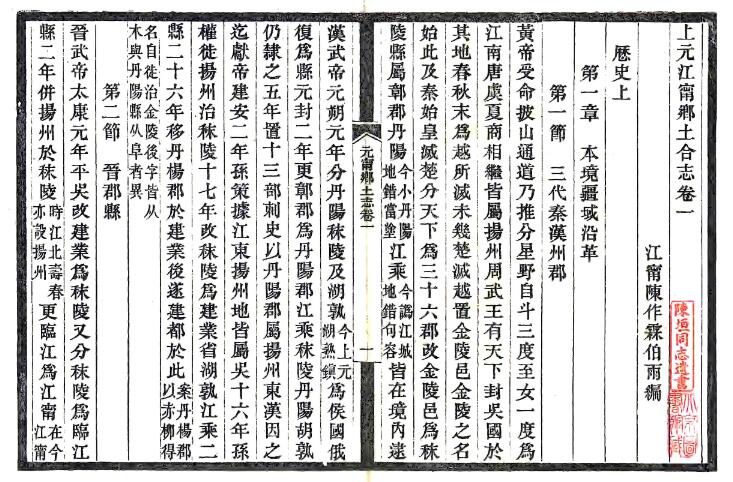 上元江甯鄉土合志卷一
江甯陳作霖伯雨編
歷史上
第一章　本境疆域沿革
第一節　三代秦漢州郡
黃帝受命披山通道乃推分星野自斗三度至女一度爲
江南唐虞夏商相繼皆屬揚州周武王有天下封吳國於
其地春秋末爲越所滅未幾楚滅越置金陵邑金陵之名
始此及秦始皇滅楚分天下爲三十六郡改金陵邑爲秣
陵縣屬鄣郡丹陽今小丹陽地錯當塗江乘今譌江城地錯句容皆在境內逮
元甯鄉土志卷一
一
漢武帝元朔元年分丹陽秣陵及湖孰今上元湖熟鎭爲侯國俄
復爲縣元封二年更鄣郡爲丹陽郡江乘秣陵丹陽胡孰
仍隸之五年置十三部刺史以丹陽郡屬揚州東漢因之
迄獻帝建安二年孫策據江東揚州地皆屬吳十六年孫
權徙揚州治秣陵十七年改秣陵爲建業省湖孰江乘二
縣二十六年移丹楊郡於建業後遂建都於此案丹楊郡以赤柳得
名自徙治金陵後字皆从木與丹陽縣从阜者異
第二節　晉郡縣
晉武帝太康元年平吳改建業爲秣陵又分秣陵爲臨江
縣二年併揚州於秣陵時江北壽春亦設揚州更臨江爲江甯在今江甯
陳垣同志遺書